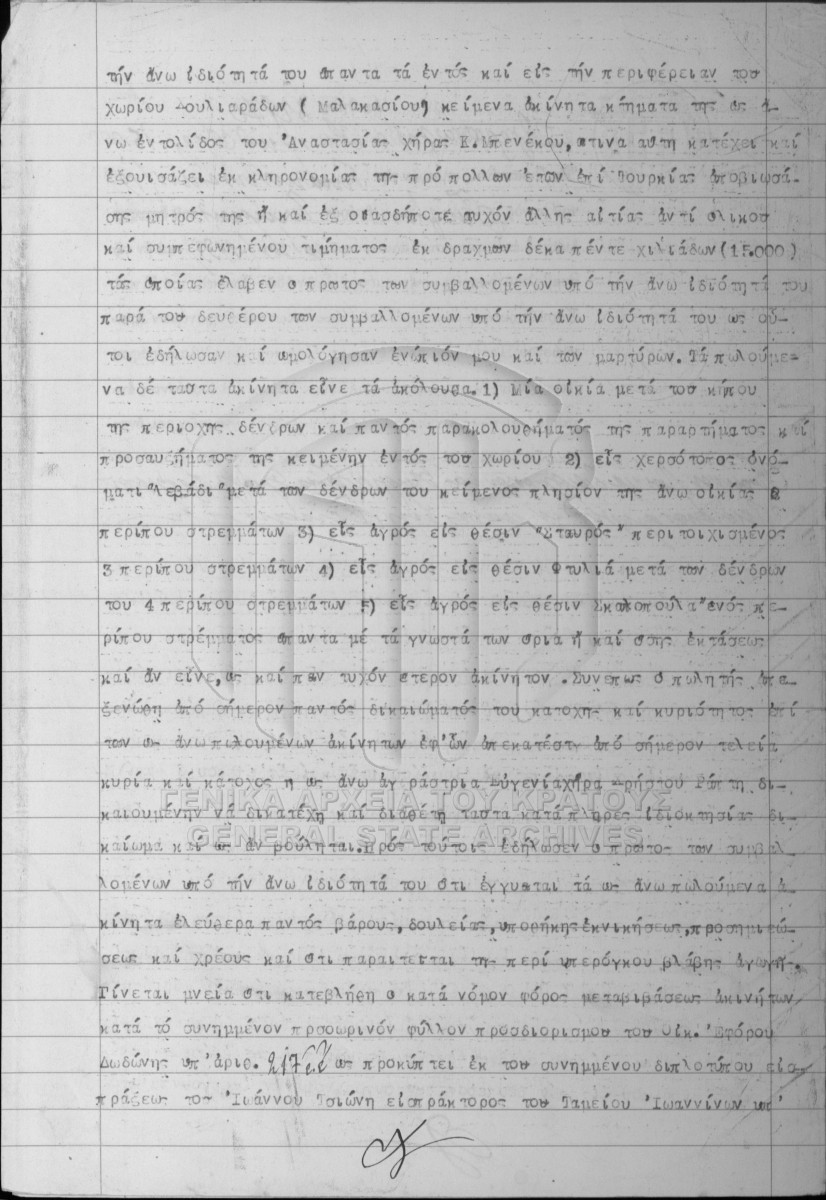 τήν ἄνω ἰδιότητά του ἅπαντα τά ἐντός καί εἰς τήν περιφέρειαν τοῦ
χωρίου Δουλιαράδων ( Μαλακασίου) κείμενα ἀκίνητα κτήματα τῆς ὡς ἄ-
νω ἐντολίδος του Ἀναστασίας χήρας Κ.Μπενέκου, ἅτινα αὕτη κατέχει καί
ἐξουισάζει ἐκ κληρονομίας τῆς πρό πολλῶν ἐτῶν ἐπί Τουρκίας ἀποβιωσά-
σης μητρός της ἤ καί ἐξ οἱασδήποτε τυχόν ἄλλης αἰτίας ἀντί ὁλικοῦ
καί συμπεφωνημένου τιμήματος ἐκ δραχμῶν δέκα πέντε χιλιάδων (15.000)
τάς ὁποίας ἔλαβεν ὁ πρῶτος τῶν συμβαλλομένων ὑπό τήν ἄνω ἰδιότητά του
παρά τοῦ δευτέρου τῶν συμβαλλομένων ὑπό τήν ἄνω ἰδιότητά του ὡς οὗ-
τοι ἐδήλωσαν καί ὡμολόγησαν ἐνώπιόν μου καί τῶν μαρτύρων. Τά πωλούμε-
να δέ ταῦτα ἀκίνητα εἶνε τά ἀκόλουθα. 1) Μία οἰκία μετά τοῦ κήπου
τῆς περιοχῆς δένδρων καί παντός παρακολουθήματός της παραρτήματος καί
προσαυξήματος της κειμένην ἐντός τοῦ χωρίου 2) εἷς χερσότοπος ὀνό-
ματι "Λεβάδι" μετά τῶν δένδρων του κείμενος πλησίον τῆς ἄνω οἰκίας 2
περίπου στρεμμάτων 3) εἷς ἀγρός εἰς θέσιν "Σταυρός" περιτοιχισμένος
3 περίπου στρεμμάτων 4) εἷς ἀγρός εἰς θέσιν Φτυλιά μετά τῶν δένδρων
του 4 περίπου στρεμμάτων 5) εἷς ἀγρός εἰς θέσιν Σκαλοπούλα" ἑνός πε-
ρίπου στρέμματος ἅπαντα μέ τά γνωστά των ὅρια ἤ καί ὅσης ἐκτάσεως
καί ἄν εἶνε, ὡς καί πᾶν τυχόν ἕτερον ἀκίνητον. Συνεπῶς ὁ πωλητής ἀπε-
ξενώθη ἀπό σήμερον παντός δικαιώματός του κατοχῆς καί κυριότητος ἐπί
τῶν ὡς ἄνω πωλουμένων ἀκινήτων ἐφ' ὧν ἀπεκατέστη ἀπό σήμερον τελεία
κυρία καί κάτοχος ἡ ὡς ἄνω ἀγοράστρια Εὐγενία χήρα Χρήστου Ράπτη δι-
ΓΕΝΙΚΑ ΑΡΧΕΙΑ ΤΟΥ ΚΡΑΤΟΥΣ
καιουμένην νά δικατέχη καί διαθέτη ταῦτα κατά πλῆρες ἰδιοκτησίας δι-
GENERAL STATE ARCHIVES
καίωμα καί ὡς ἄν βούληται. Πρός τούτοις ἐδήλωσεν ὁ πρῶτος τῶν συμβαλ-
λομένων ὑπό τήν ἄνω ἰδιότητά του ὅτι ἐγγυᾶται τά ὡς ἄνω πωλούμενα ἀ-
κίνητα ἐλεύθερα παντός βάρους, δουλείας, ὑποθήκης ἐκνικήσεως, προσημειώ-
σεως καί χρέους καί ὅτι παραιτεῖται τῆς περί ὑπερόγκου βλάβης ἀγωγῆς.
Γίνεται μνεία ὅτι κατεβλήθη ὁ κατά νόμον φόρος μεταβιβάσεως ἀκινήτων
κατά τό συνημμένον προσωρινόν φύλλον προσδιορισμοῦ τοῦ Οἰκ. Ἐφόρου
Δωδώνης ὑπ' ἀριθ. ὡς προκύπτει ἐκ τοῦ συνημμένου διπλοτύπου εἰσ-
πράξεως τοῦ Ἰωάννου Τσιώνη εἰσπράκτορος τοῦ Ταμείου Ἰωαννίνων ὑπ'